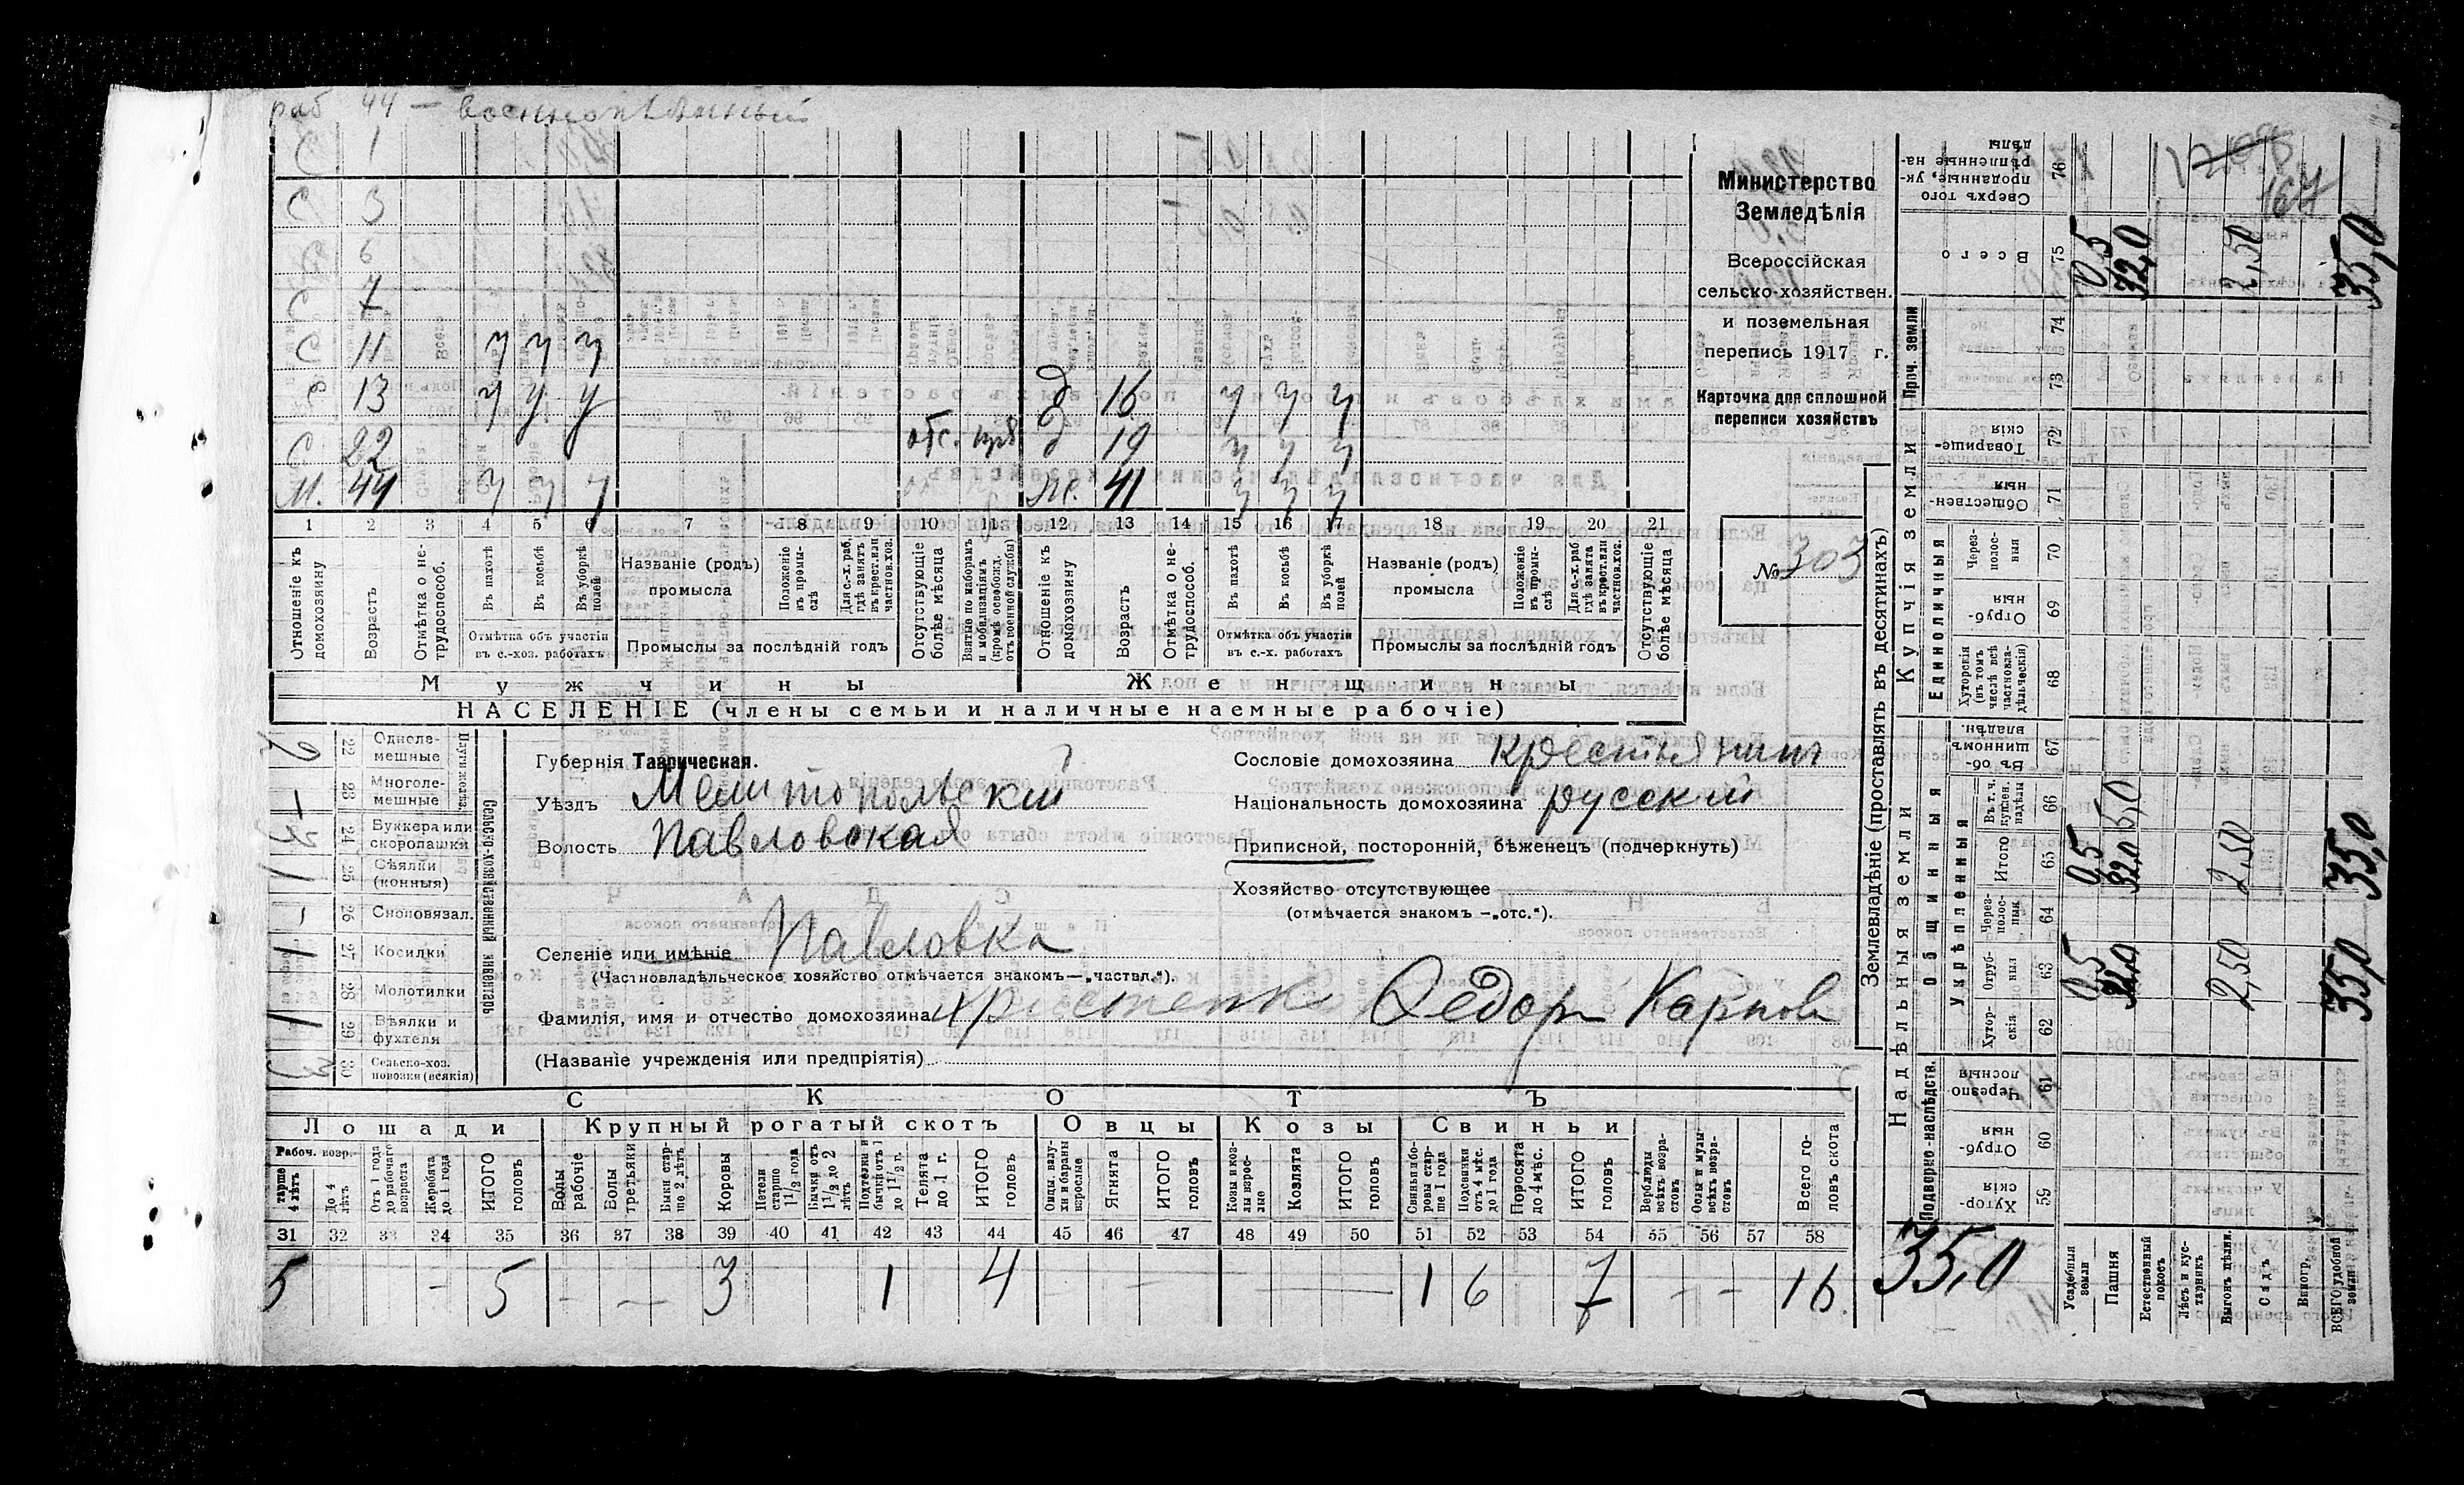 раб 44 — военнопленный
С 1
С 3
С 6
С 7
С 11 у у у
С 13 у у у Д 16 у у у
С 22 отс. Д 19 у у у
М. 44 у у у Ж. 41 у у у
1 2 3 4 5 6 7 8 9 10 11 12 13 14 15 16 17 18 19 20 21
Отношеніе къ домохозяину
Возрастъ
Отмѣтка о не-трудоспособ.
Въ пахотѣ
Въ косьбѣ
Въ уборкѣ полей
Отмѣтка объ участіи въ с.-хоз. работахъ
Названіе (родъ) промысла
Положеніе въ промы-слѣ
Для с.-х. раб. гдѣ занятъ въ крест. или частновл. хоз.
Промыслы за послѣдній годъ
Отсутствующіе болѣе мѣсяца
Взятые по наборамъ и мобилизаціямъ (кромѣ освобожд. отъ военной службы)
Отношеніе къ домохозяину
Возрастъ
Отмѣтка о не-трудоспособ.
Въ пахотѣ
Въ косьбѣ
Въ уборкѣ полей
Отмѣтка объ участіи въ с.-х. работахъ
Названіе (родъ) промысла
Положеніе въ промы-слѣ
Для с.-х. раб. гдѣ занята въ крест. или частновл. хоз.
Промыслы за послѣдній годъ
Отсутствующіе болѣе мѣсяца
Мужчины Женщины
НАСЕЛЕНІЕ (члены семьи и наличные наемные рабочіе)
Министерство
Земледѣлія
Всероссійская
сельско-хозяйствен.
и поземельная
перепись 1917 г.
Карточка для сплошной
переписи хозяйствъ
№ 303
Сельско-хозяйственный инвентарь
22 Одноле-мешные 2
23 Многоле-мешные –
24 Буккера или скоропашки
25 Сѣялки (конныя) 1
26 Сноповязал. –
27 Косилки 1
28 Молотилки
29 Вѣялки и фухтеля 1
30 Сельско-хоз. повозки (всякія) 3
Губернія Таврическая.
Уѣздъ Мелитопольскій
Волость Павловская
Селеніе или имѣніе Павловка
(Частновладѣльческое хозяйство отмѣчается знакомъ—„частвл.“).
Фамилія, имя и отчество домохозяина Христенко Федоръ Карпов
(Названіе учрежденія или предпріятія)
Сословіе домохозяина крестьянин
Національность домохозяина русскій
Приписной, посторонній, бѣженецъ (подчеркнуть)
Хозяйство отсутствующее
(отмѣчается знакомъ —„отс.“).
СКОТЪ
Лошади Крупный рогатый скотъ Овцы Козы Свиньи
Рабоч. возр.
Старше 4 лѣтъ
До 4 лѣтъ
Отъ 1 года до рабочаго возраста
Жеребята до 1 года
ИТОГО головъ
Волы рабочіе
Волы третьяки
Быки стар-ше 2 лѣтъ
Коровы
Нетели старше 1½ года
Бычки отъ 1½ до 2 лѣтъ
Подтелки и бычки отъ 1 до 1½ г.
Телята до 1 г.
ИТОГО головъ
Овцы, валу-хи и бараны взрослые
Ягнята
ИТОГО головъ
Козы и коз-лы взрос-лые
Козлята
ИТОГО головъ
Свиньи и бо-ровы стар-ше 1 года
Подсвинки отъ 4 мѣс. до 1 года
Поросята до 4 мѣс.
ИТОГО головъ
Верблюды всѣхъ возра-стовъ
Ослы и мулы всѣхъ возра-стовъ
Всего го-ловъ скота
31 32 33 34 35 36 37 38 39 40 41 42 43 44 45 46 47 48 49 50 51 52 53 54 55 56 57 58
5 – 5 – — 3 1 4 – — — 1 6 7 – – 16
Землевладѣніе (проставлять въ десятинахъ)
Надѣльныя земли
Купчія земли
Проч. земли
Подворно-наслѣдств.
Общинныя
Укрѣпленныя
Единоличныя
Хутор-скія 59
Отруб-ныя 60
Черезпо-лосныя 61
Хутор-скія 62
Отруб-ныя 63
Черес-полос-ныя 64
Итого 65
Въ т. ч. куплен. надѣлы 66
Въ об-щинномъ владѣн. 67
Хуторскія (въ томъ числѣ всѣ частновла-дѣльческія) 68
Отруб-ныя 69
Через-полос-ныя 70
Обществен-ныя 71
Товарище-скія 72
73
74
Всего 75
Сверхъ того проданные, ук-рѣпленные на-дѣлы 76
Усадебныя земли 0,5 0,5 0,5
Пашня 32,0 32,0 5,0 32,0
Естественный покосъ
Лѣсъ и кус-тарникъ
Выгонъ цѣлин. 2,50 2,50 2,50
Садъ
Виногр.
ВСЕГО удобной земли 35,0 35,0 35,0
35,0
167